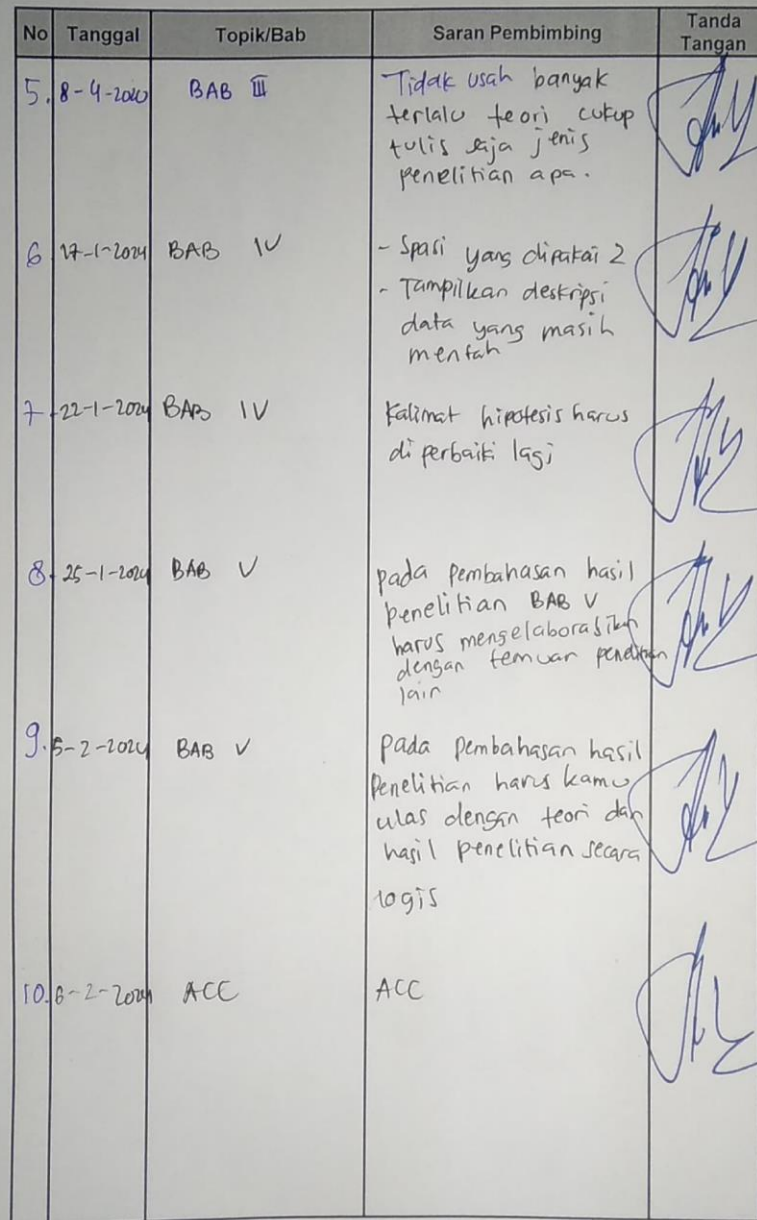 No Tanggal Topik/Bab Saran Pembimbing Tanda Tangan
5. 8-4-2020 BAB III Tidak usah banyak
terlalu teori cukup
tulis saja jenis
penelitian apa.
6 17-1-2024 BAB IV - Spasi yang dipakai 2
- Tampilkan deskripsi
data yang masih
mentah
7 22-1-2024 BAB IV Kalimat hipotesis harus
di perbaiki lagi
8. 25-1-2024 BAB V pada pembahasan hasil
penelitian BAB V
harus mengelaborasikan
dengan temuan penelitian
lain
9. 5-2-2024 BAB V pada pembahasan hasil
Penelitian harus kamu
ulas dengan teori dan
hasil penelitian secara
logis
10. 6-2-2024 ACC ACC